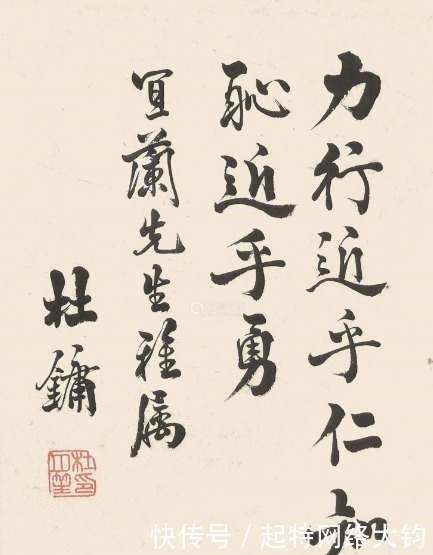 力行近乎仁知
恥近乎勇
宜蘭先生雅属
杜鏞
杜印月笙
快传号 / 起特网络大钧